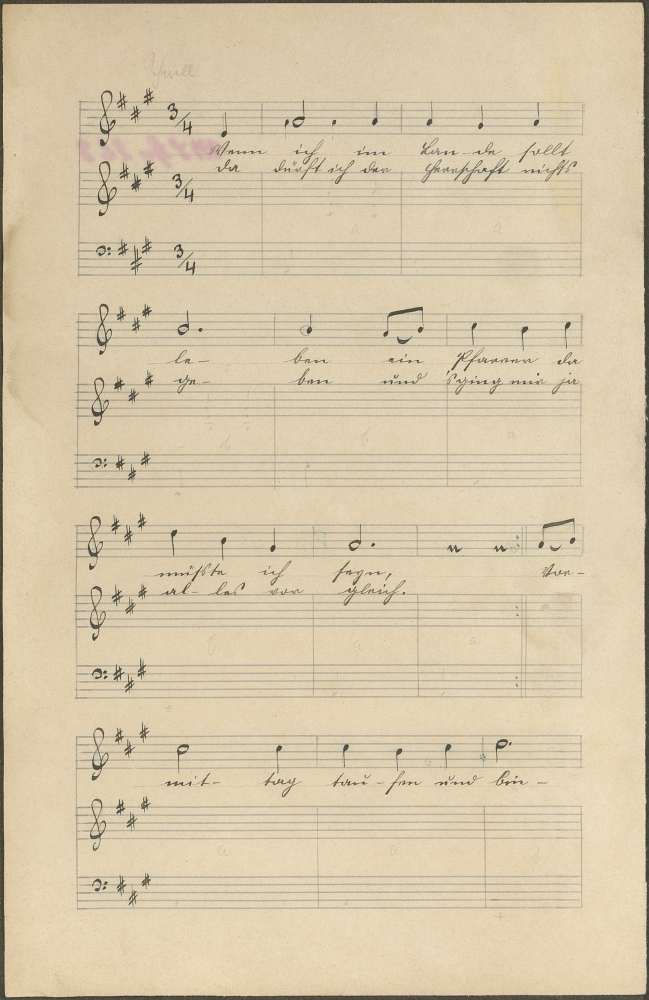 3/4
Wenn ich im Lan-de sollt
da dürft ich der Herrschaft nichts
3/4
3/4
le- ben ein Pfarrer da
ge- ben und 's ging mir ja
müßte ich seyn,
Vor-
al-les vor gleich.
mit- tag tau-fen und